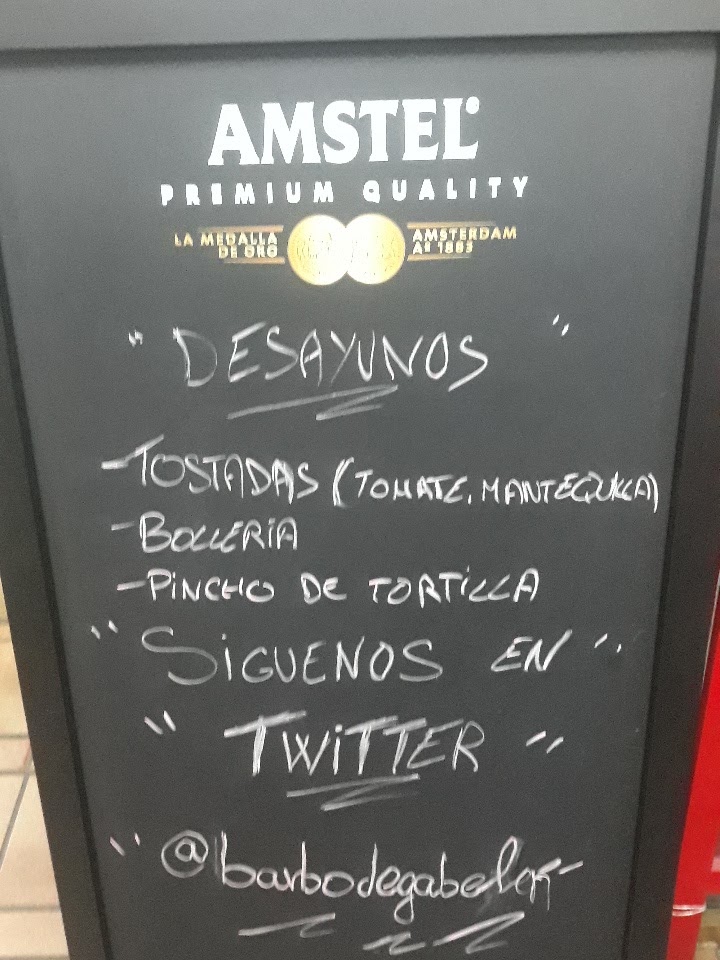 AMSTEL
PREMIUM QUALITY
LA MEDALLA DE ORO
AMSTERDAM Aº 1883
" DESAYUNOS "
-TOSTADAS (TOMATE, MANTEQUILLA)
-BOLLERiA
-PiNCHO DE TORTiLLA
" SiGUENOS EN "
" TWiTTER "